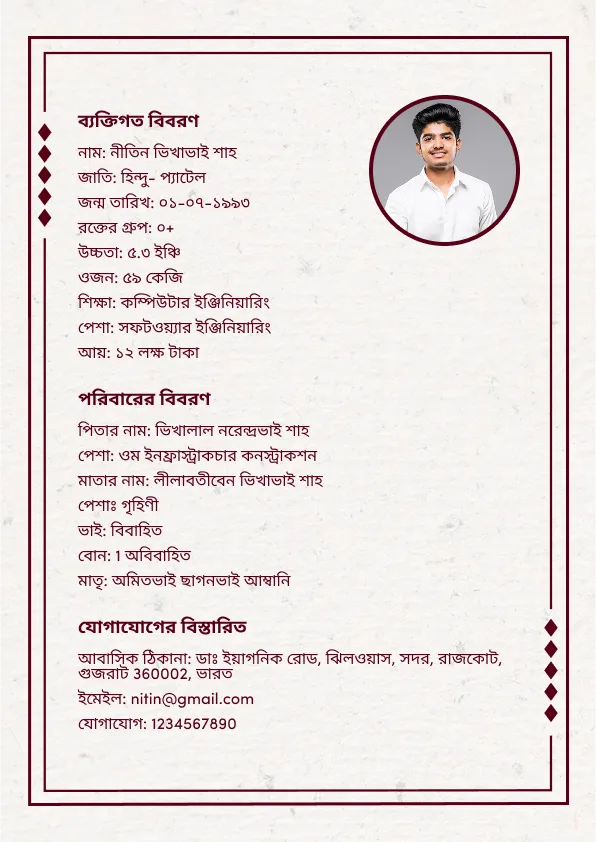 ব্যক্তিগত বিবরণ
নাম: নীতিন ভিখাভাই শাহ
জাতি: হিন্দু- প্যাটেল
জন্ম তারিখ: ০১-০৭-১৯৯৩
রক্তের গ্রুপ: ০+
উচ্চতা: ৫.৩ ইঞ্চি
ওজন: ৫৯ কেজি
শিক্ষা: কম্পিউটার ইঞ্জিনিয়ারিং
পেশা: সফটওয়্যার ইঞ্জিনিয়ারিং
আয়: ১২ লক্ষ টাকা
পরিবারের বিবরণ
পিতার নাম: ভিখালাল নরেন্দ্রভাই শাহ
পেশা: ওম ইনফ্রাস্ট্রাকচার কনস্ট্রাকশন
মাতার নাম: লীলাবতীবেন ভিখাভাই শাহ
পেশাঃ গৃহিণী
ভাই: বিবাহিত
বোন: 1 অবিবাহিত
মাতৃ: অমিতভাই ছাগনভাই আম্বানি
যোগাযোগের বিস্তারিত
আবাসিক ঠিকানা: ডাঃ ইয়াগনিক রোড, ঝিলওয়াস, সদর, রাজকোট,
গুজরাট 360002, ভারত
ইমেইল: nitin@gmail.com
যোগাযোগ: 1234567890